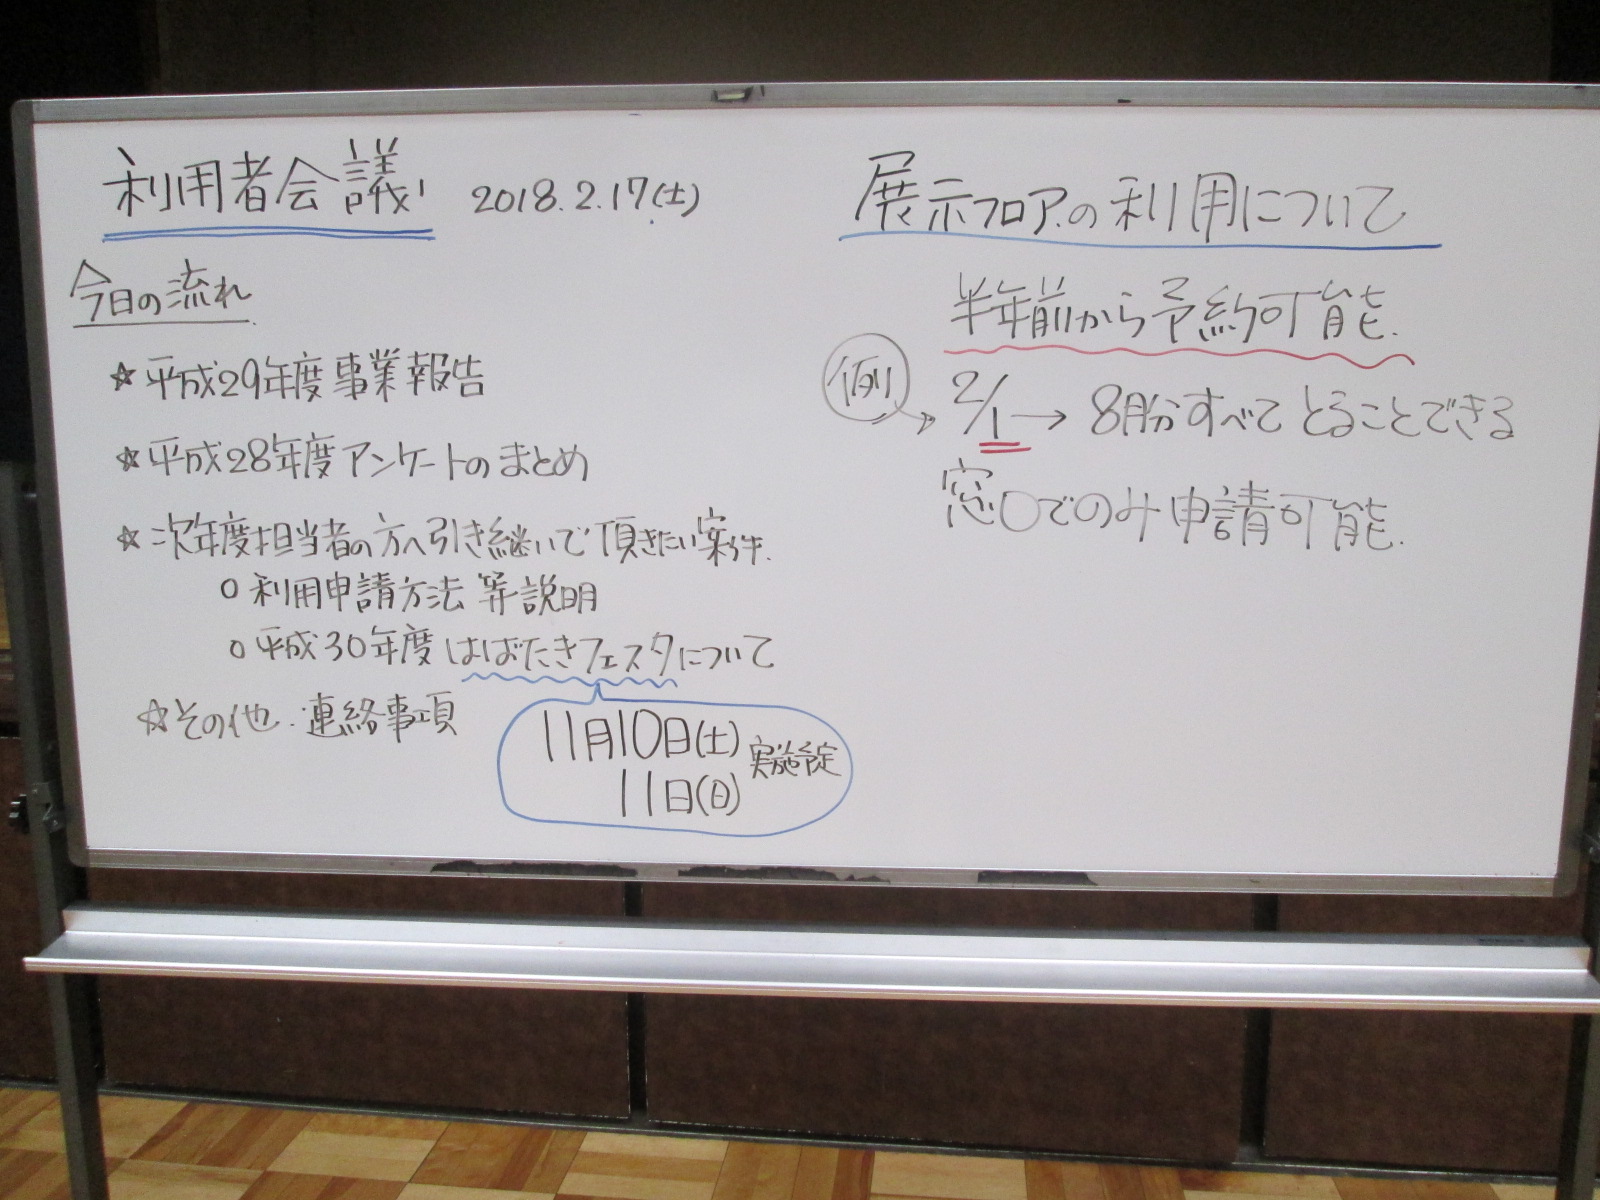 利用者会議 2018.2.17(土)
今日の流れ
☆平成29年度事業報告
☆平成28年度アンケートのまとめ
☆次年度担当者の方へ引き継いで頂きたい案件.
○利用申請方法 等説明
○平成30年度 はばたきフェスタについて
11月10日(土)
11日(日)
実施予定
☆その他・連絡事項
展示フロアの利用について
半年前から予約可能.
例 2/1→ 8月分すべて とることできる
窓口でのみ申請可能.